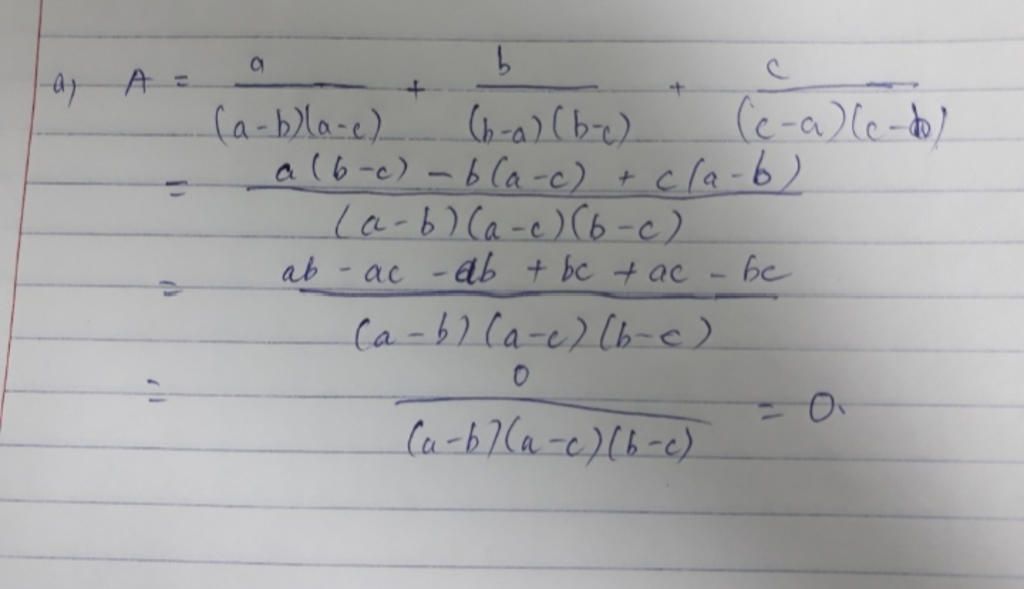 a) A = a/((a-b)(a-c)) + b/((b-a)(b-c)) + c/((c-a)(c-b))
= (a(b-c) - b(a-c) + c(a-b))/((a-b)(a-c)(b-c))
= (ab - ac - ab + bc + ac - bc)/((a-b)(a-c)(b-c))
= 0/((a-b)(a-c)(b-c)) = 0.